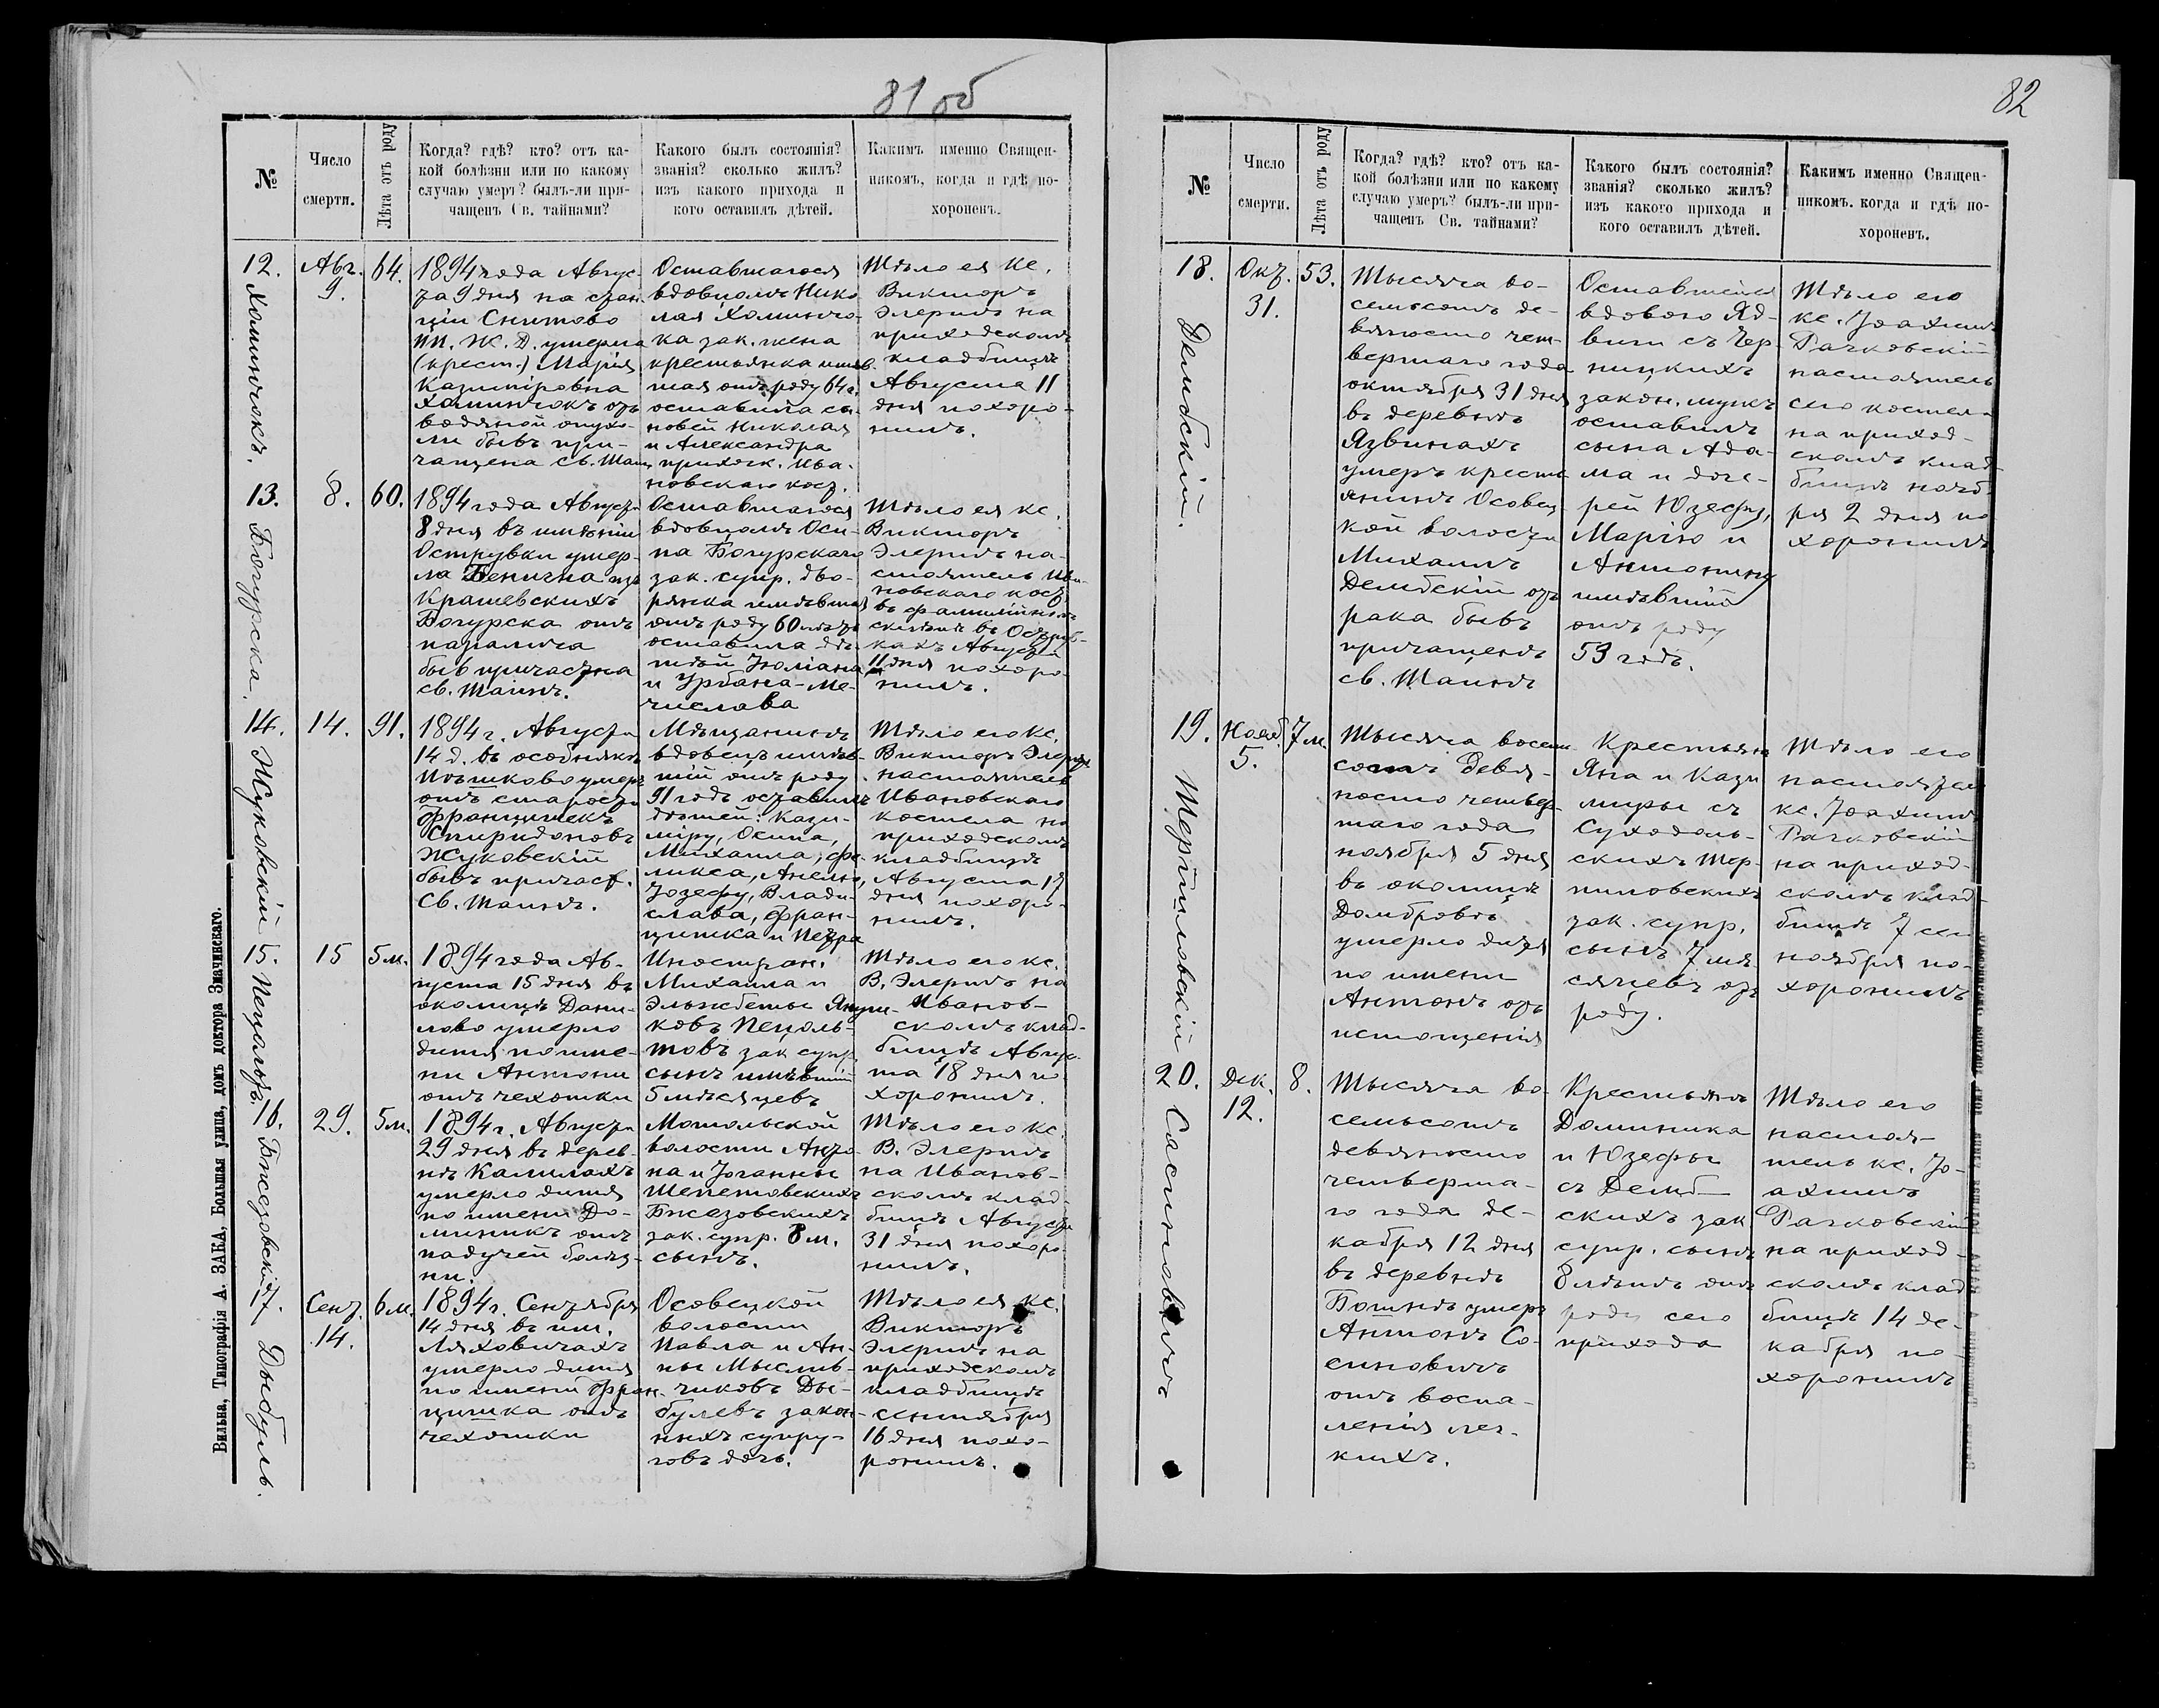 81 об
№
Число
смерти.
Лѣта отъ роду
Когда? гдѣ? кто? отъ ка-
кой болѣзни или по какому
случаю умеръ? былъ-ли при-
чащенъ Св. тайнами?
Какого былъ состоянія?
званія? сколько жилъ?
изъ какого прихода и
кого оставилъ дѣтей.
Какимъ именно Священ-
никомъ, когда и гдѣ по-
хороненъ.
12.
Хоминчокъ.
Авг.
9.
64.
1894 года Авгус-
та 9 дня на стан-
ціи Снитово
Пп. Ж. Д. умерла
(крест.) Марія
Казиміровна
Хоминчокъ отъ
водяной опухо-
ли бывъ при-
чащена св. Таин.
Оставшагося
вдовцомъ Нико-
лая Хоминчо-
ка зак. жена
крестьянка имѣв.
шая отъ роду 64 г.
оставила сы-
новей Николая
и Александра
прихож. Ива-
новскаго кост.
Тѣло ея кс.
Викторъ
Элертъ на
приходскомъ
кладбищѣ
Августа 11
дня похоро-
нилъ.
13.
Богурска.
8.
60.
1894 года Августа
8 дня въ имѣніи
Острувки умер-
ла Бенигна изъ
Крашевскихъ
Богурска отъ
паралича
быв причастна
св. Таинъ.
Оставшагося
вдовцомъ Оси-
па Богурскаго
зак. супр. дво-
рянка имѣвшая
отъ роду 60 лѣтъ
оставила дѣ-
тей Юліана
и Урбана-Ме-
числава
Тѣло ея кс.
Викторъ
Элертъ на-
стоятель Ива-
новскаго кост
въ фамилійномъ
склепѣ въ Остров-
кахъ Августа
11 дня похоро-
нилъ.
14.
Жуковскій
14.
91.
1894 г. Августа
14 д. въ особнякѣ
Ивашково умеръ
отъ старости
Францишекъ
Спиридоновъ
Жуковскій
бывъ причаст.
Св. Таинъ.
Мѣщанинъ
вдовецъ имѣв-
шій отъ роду
91 годъ оставилъ
дѣтей: Кази-
міру, Осипа,
Михаила, Фе-
ликса, Анелю,
Іозефу, Влади-
слава, Фран-
цишка и Петра
Тѣло его кс.
Викторъ Элертъ
настоятель
Ивановскаго
костела на
приходскомъ
кладбищѣ
Августа 17
дня похоро-
нилъ.
15.
Пецольтъ.
15
5 м.
1894 года Ав-
густа 15 дня въ
околицѣ Дани-
лово умерло
дитя по име-
ни Антони
отъ чехотки
Иностран.
Михаила и
Эльжбеты
ковъ Пецоль-
товъ зак супр.
сынъ имѣвшій
5 мѣсяцевъ
Тѣло его кс.
В. Элертъ на
Иванов-
скомъ клад-
бищѣ Авгус-
та 18 дня по
хоронилъ.
16.
Бжезовскій
29.
5 м.
1894 г. Августа
29 дня въ дерев-
нѣ Калилахъ
умерло дитя
по имени До-
миникъ отъ
падучей болѣз-
ни.
Мотольской
волости Анто-
на и Іоганны
Шепетовскихъ
Бжезовскихъ
зак. супр. 8 м.
сынъ.
Тѣло его кс.
В. Элертъ
на Иванов-
скомъ клад-
бищѣ Августа
31 дня похоро-
нилъ.
17.
Дыбуль.
Сент.
14.
6 м.
1894 г. Сентября
14 дня въ им.
Ляховичахъ
умерло дитя
по имени Фран-
цишка отъ
чехотки
Осовецкой
волости
Павла и Ан-
ны Мысли-
чиковъ Ды-
булевъ закон-
ныхъ супру-
говъ дочь.
Тѣло ея кс.
Викторъ
Элертъ на
приходскомъ
кладбищѣ
сентября
16 дня похо-
ронилъ.
Вильна, Типографія А. ЗАКА, Большая улица, домъ доктора Змачинскаго.
82
№
Число
смерти.
Лѣта отъ роду
Когда? гдѣ? кто? отъ ка-
кой болѣзни или по какому
случаю умеръ? былъ-ли при-
чащенъ Св. тайнами?
Какого былъ состоянія?
званія? сколько жилъ?
изъ какого прихода и
кого оставилъ дѣтей.
Какимъ именно Священ-
никомъ. когда и гдѣ по-
хороненъ.
18.
Дембскій.
Окт.
31.
53.
Тысяча во-
семьсотъ де-
вяносто чет-
вертаго года
октября 31 дня
въ деревнѣ
Язвинахъ
умеръ кресть-
янинъ Осовец-
кой волости
Михаилъ
Дембскій отъ
рака бывъ
причащенъ
св. Таинъ
Оставшейся
вдовою Яд-
виги съ Чер-
ницкихъ
закон. мужъ
оставилъ
сына Ада-
ма и доче-
рей Юзефу,
Марію и
Антонину
имѣвшій
отъ роду
53 годъ.
Тѣло его
кс. Іоахимъ
Рачковскій
настоятель
сего косте-
ла на приход-
скомъ клад-
бищѣ нояб-
ря 2 дня по
хоронилъ
19.
Терпиловскій
Нояб
5.
7 м.
Тысяча восемь
сотъ девя-
носто четвер-
таго года
ноября 5 дня
въ околицѣ
Домбровѣ
умерло дитя
по имени
Антонъ отъ
истощенія
Крестьянъ
Яна и Кази
миры съ
Суходоль-
скихъ Тер-
пиловскихъ
зак. супр.
сынъ 7 мѣ-
сяцевъ отъ
роду.
Тѣло его
настоятель
кс. Іоахимъ
Рачковскій
на приход-
скомъ клад-
бищѣ 7 сего
ноября по-
хоронилъ
20.
Сасиновичъ
Дек.
12.
8.
Тысяча во
семьсотъ
девяносто
четверта-
го года де-
кабря 12 дня
въ деревнѣ
умеръ
Антонъ Со-
синовичъ
отъ воспа-
ленія лег-
кихъ.
Крестьянъ
Доминика
и Юзефы
съ Демб-
скихъ зак
супр. сынъ
8 лѣтъ отъ
роду сего
прихода
Тѣло его
настоя-
тель кс. Іо-
ахимъ
Рачковскій
на приход-
скомъ клад
бищѣ 14 де-
кабря по-
хоронилъ